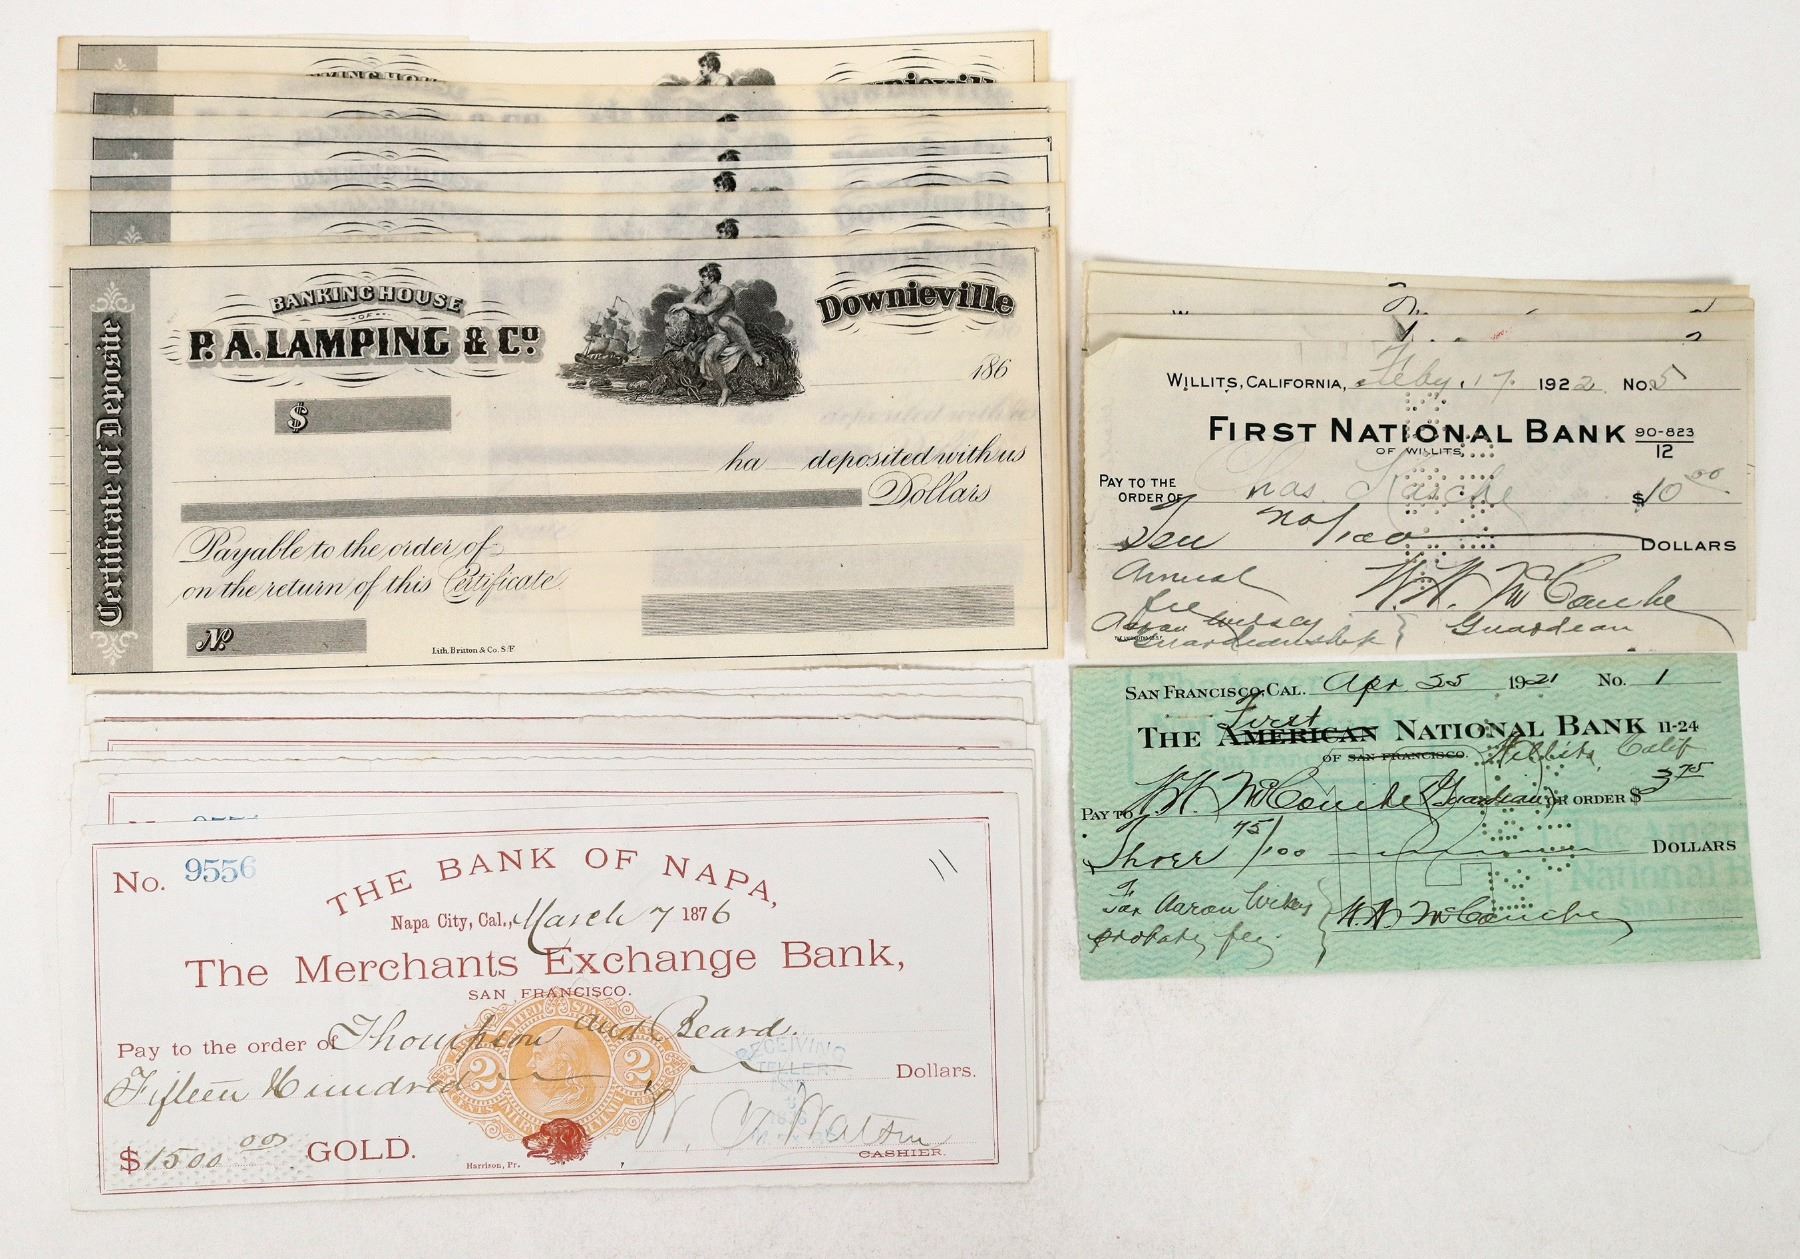 Downieville
Certificate of Deposite
BANKING HOUSE
OF
P. A. LAMPING & Co.
Downieville
186
$
ha deposited with us
Dollars
Payable to the order of
on the return of this Certificate
No.
Lith. Britton & Co. S.F.
No. 9556
THE BANK OF NAPA,
11
Napa City, Cal., March 7 1876
The Merchants Exchange Bank,
SAN FRANCISCO.
Pay to the order of Thompson and Beard.
Fifteen Hundred Dollars.
2 2
RECEIVING
TELLER
$1500 00 GOLD.
W. C. Watson
CASHIER.
Harrison, Pr.
WILLITS, CALIFORNIA, Feby. 17 1922 No. 5
FIRST NATIONAL BANK 90-823
OF WILLITS 12
PAY TO THE
ORDER OF Chas. $10 00
Ten no/100 DOLLARS
Annual
fee
Aaron
Guardianship
Guardian
SAN FRANCISCO, CAL. Apr 25 1921 No. 1
First
THE AMERICAN NATIONAL BANK 11-24
OF SAN FRANCISCO. Willits, Calif
PAY TO (Guardian) OR ORDER $3 75
Three 75/100 DOLLARS
For Aaron
probate fee